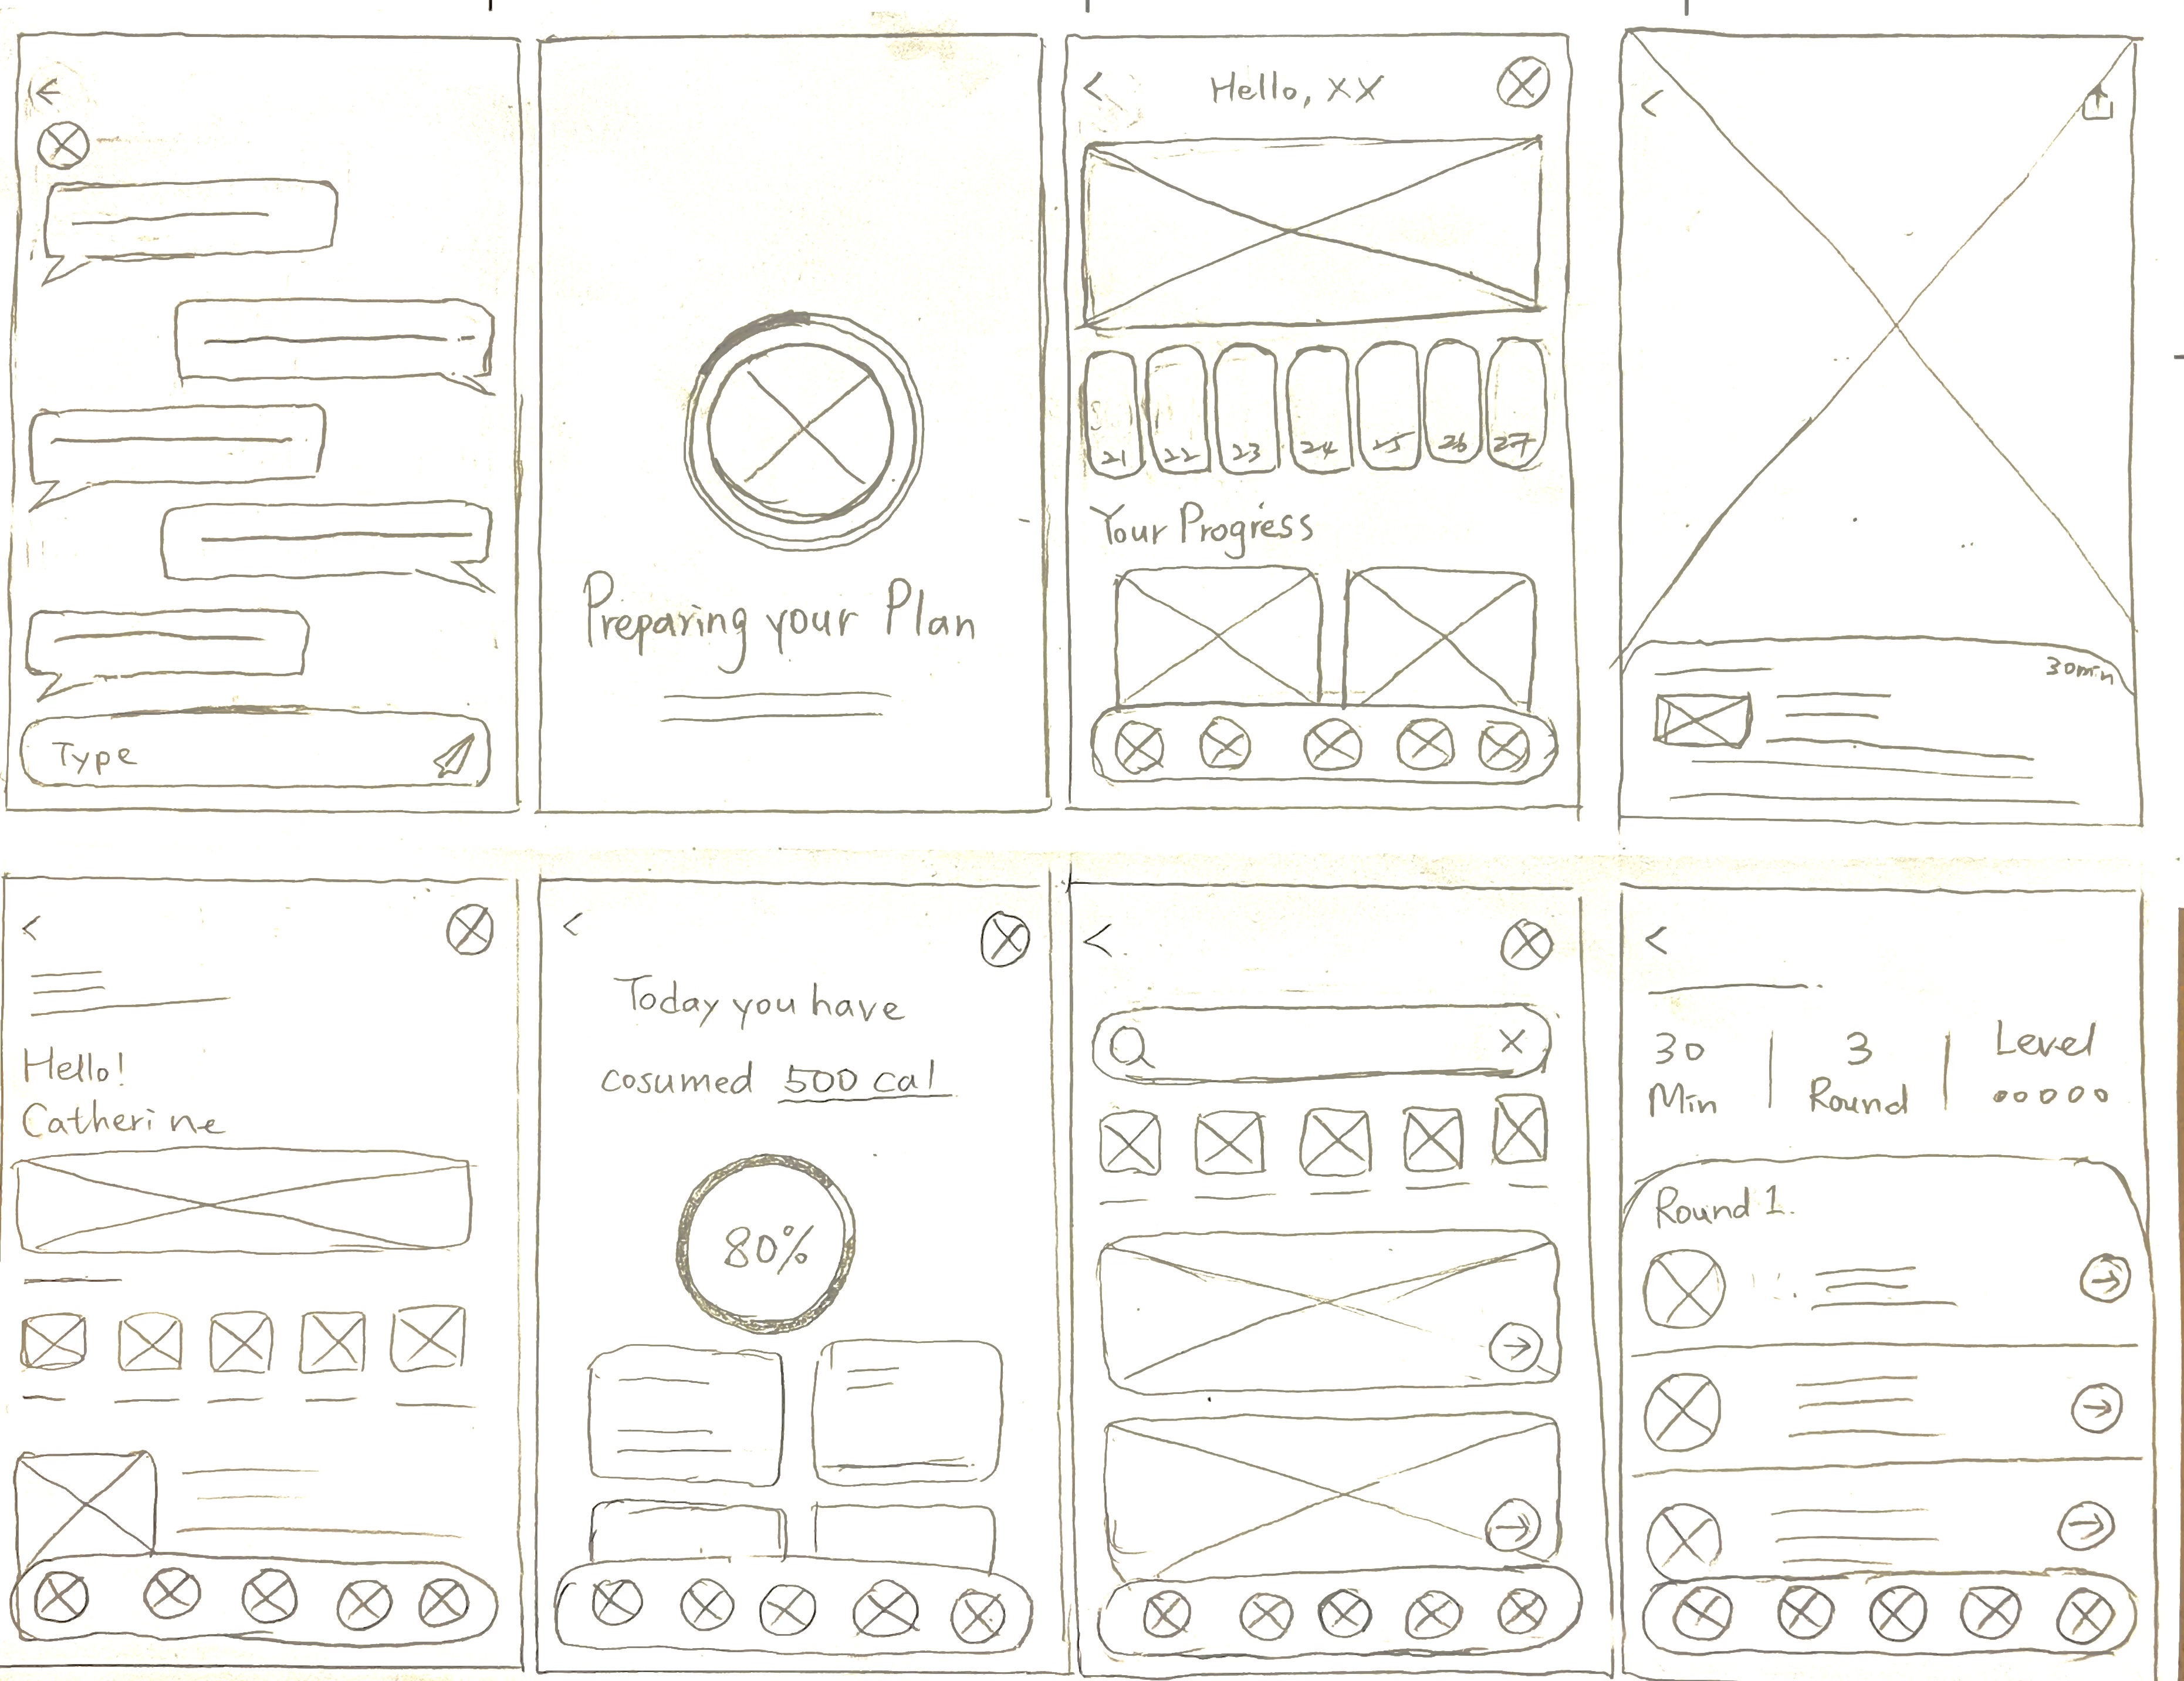 Type
Preparing your Plan
Hello, XX
21 22 23 24 25 26 27
Your Progress
30min
Hello!
Catherine
Today you have
cosumed 500 cal
80%
30 Min
3 Round
Level
Round 1.